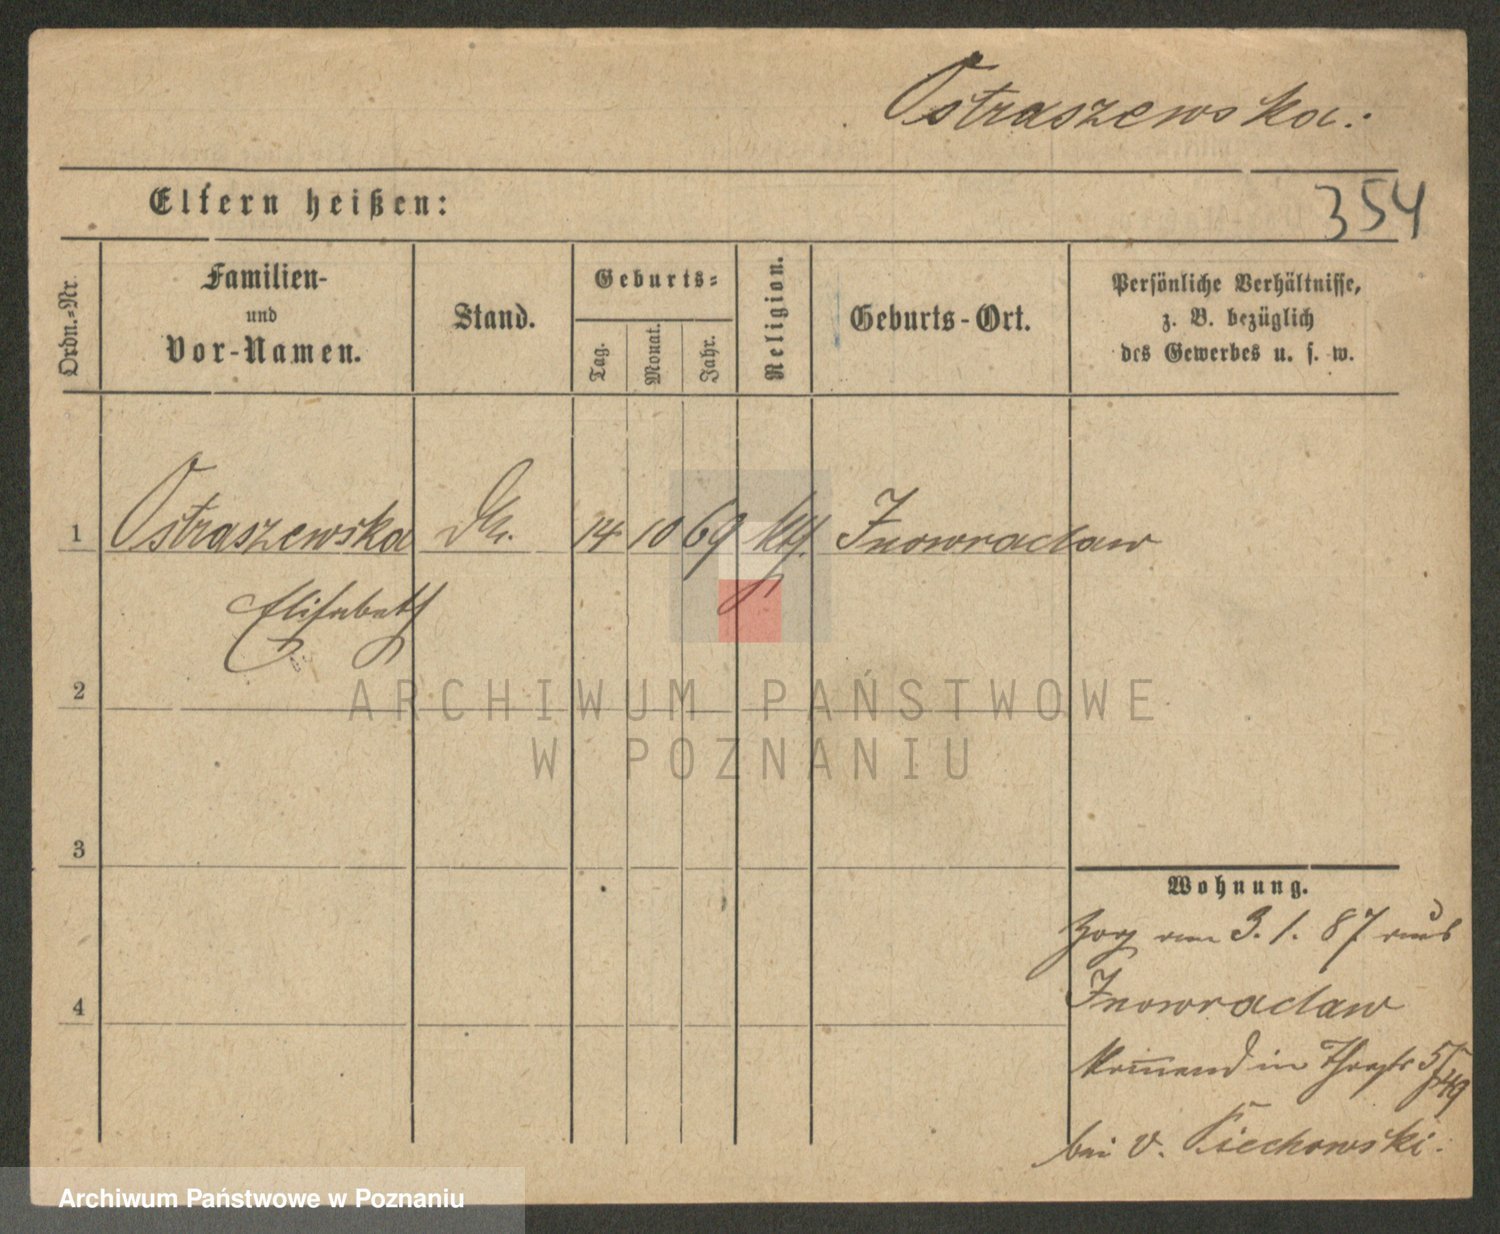 Ostraszewska.
Eltern heißen:
354
Ordn.-Nr.
Familien-
und
Vor-Namen.
Stand.
Geburts-
Tag.
Monat.
Jahr.
Religion.
Geburts-Ort.
Persönliche Verhältnisse,
z. B. bezüglich
des Gewerbes u. s. w.
1 Ostraszewska 14 10 69 kth. Inowraclaw
Elisabeth
2
ARCHIWUM PAŃSTWOWE
W POZNANIU
3
Wohnung.
Zog am 3. 1. 87 aus
4
Inowraclaw
kommend in
bei v.
Archiwum Państwowe w Poznaniu